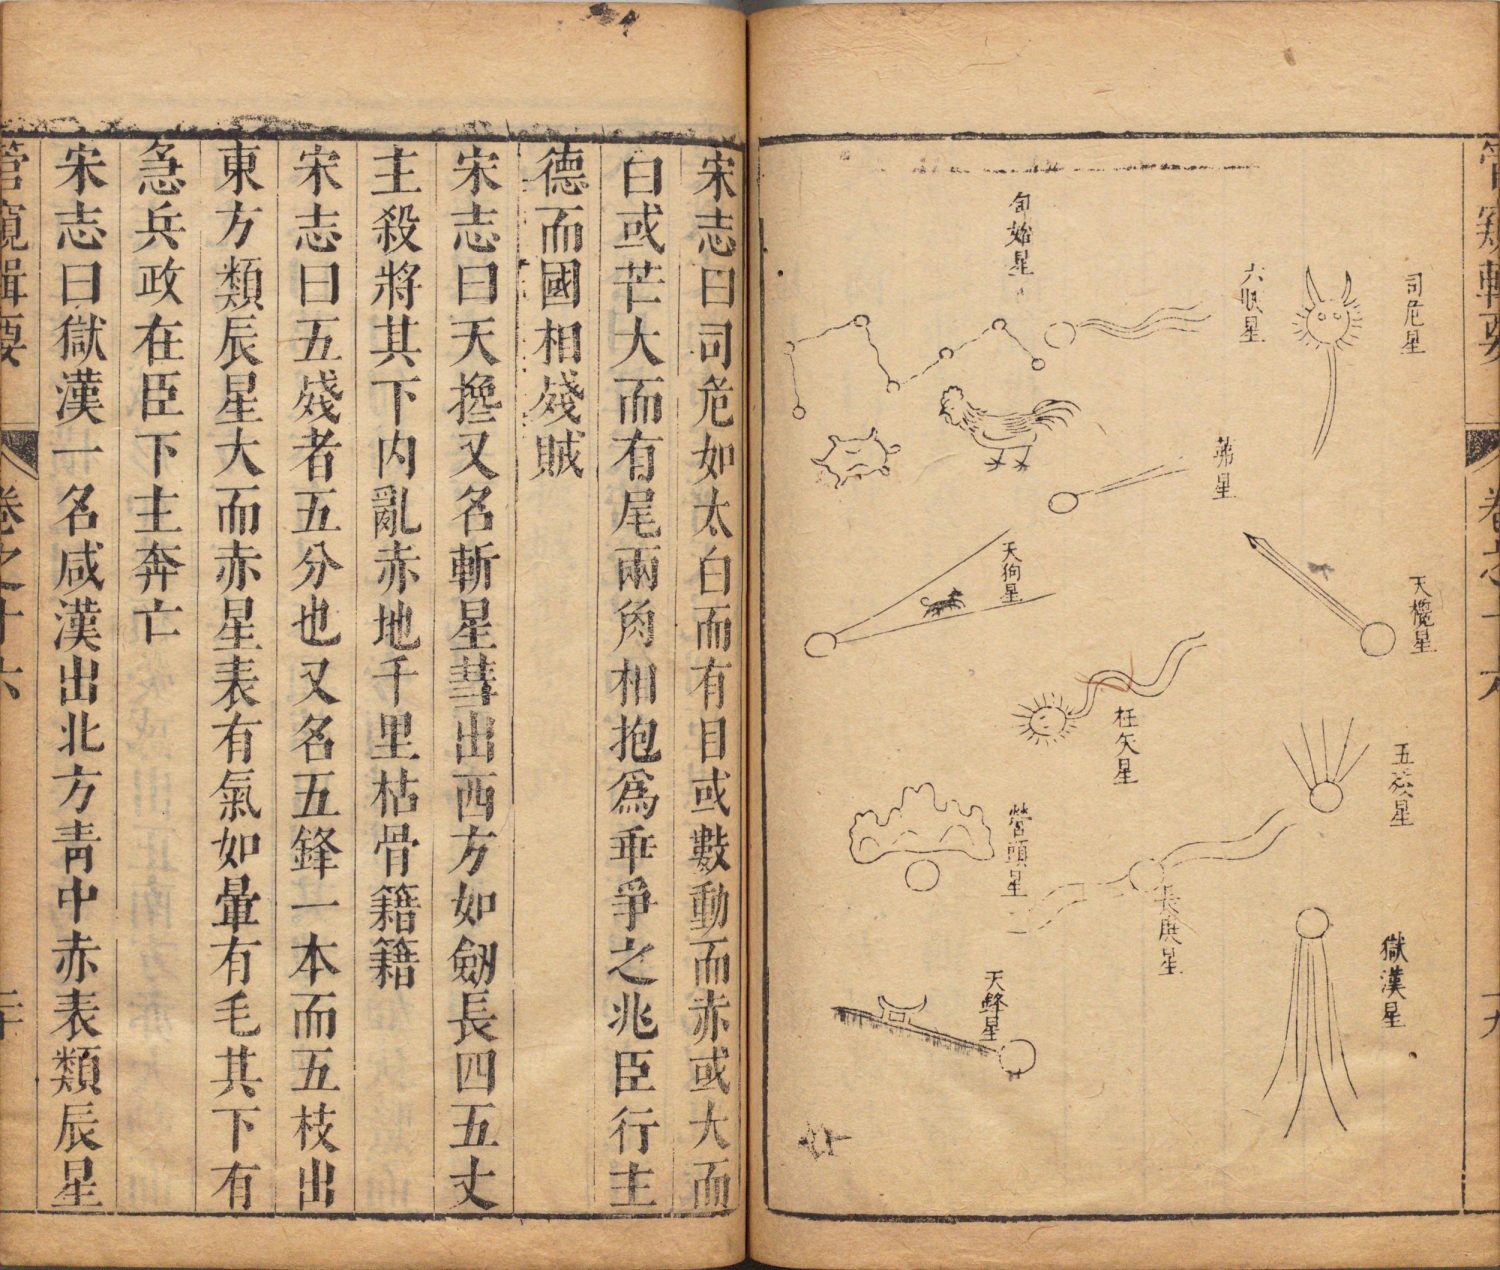 司危星
天欃星
五殘星
獄漢星
六賊星
茀星
枉矢星
長庚星
旬始星
天狗星
營頭星
天鋒星
宋志曰司危如太白而有目或數動而赤或大而
白或芒大而有尾兩角相抱爲乖爭之兆臣行主
德而國相殘賊
宋志曰天攙又名斬星彗出西方如劒長四五丈
主殺將其下內亂赤地千里枯骨籍籍
宋志曰五殘者五分也又名五鋒一本而五枝出
東方類辰星大而赤星表有氣如暈有毛其下有
急兵政在臣下主奔亡
宋志曰獄漢一名咸漢出北方青中赤表類辰星
管窺輯要 卷之十六 二十